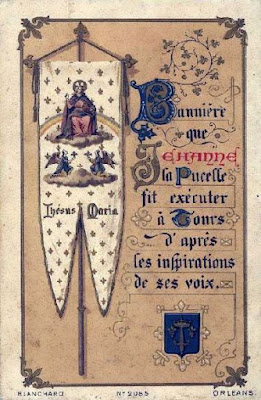 Bannière
que
Jehanne
la Pucelle
fit exécuter
à Tours
d'après
les inspirations
de ses voix.
Jhésus Maria
BLANCHARD Nº 2085 ORLÉANS.